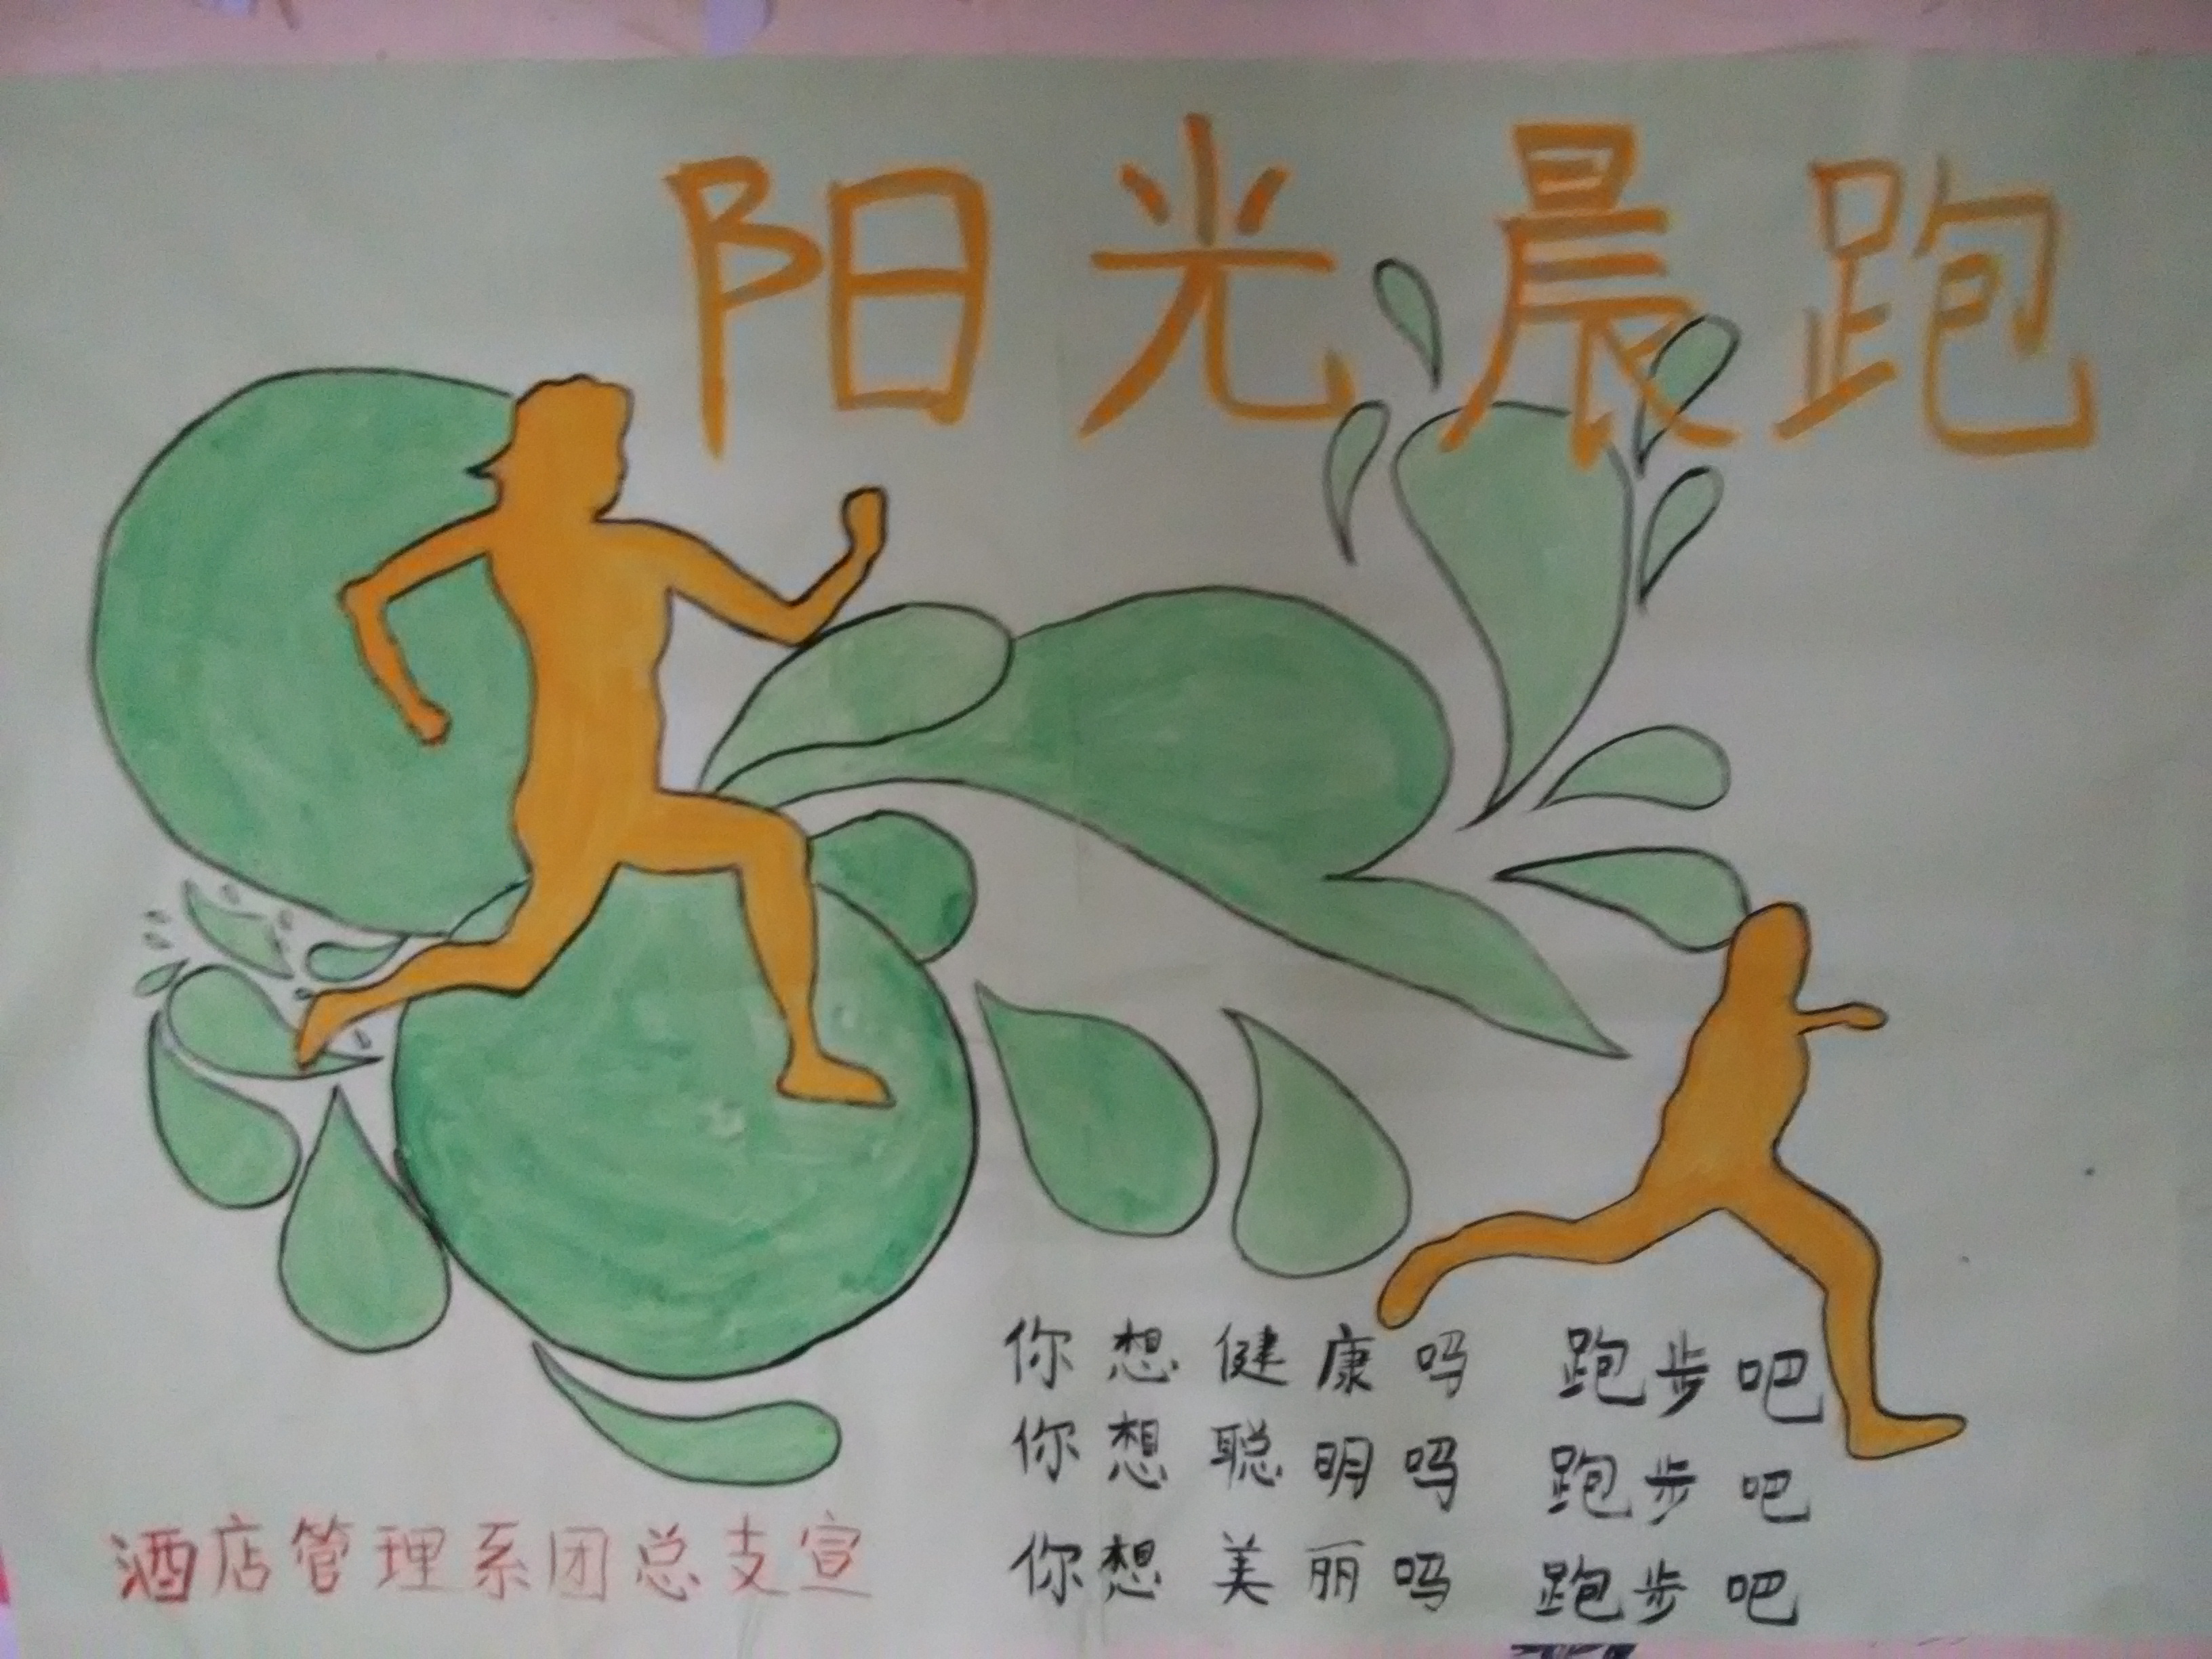 阳光晨跑
你想健康吗 跑步吧
你想聪明吗 跑步吧
你想美丽吗 跑步吧
酒店管理系团总支宣